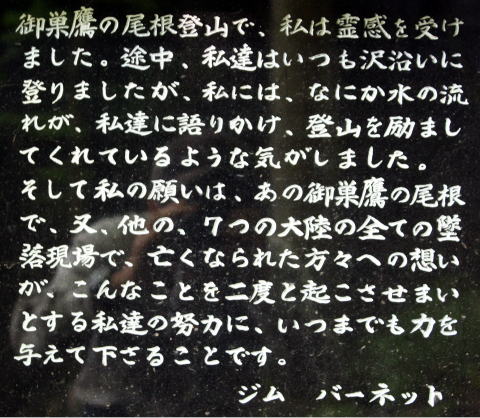 御巣鷹の尾根登山で、私は霊感を受け
ました。途中、私達はいつも沢沿いに
登りましたが、私には、なにか水の流
れが、私達に語りかけ、登山を励まし
てくれているような気がしました。
そして私の願いは、あの御巣鷹の尾根
で、又、他の、7つの大陸の全ての墜
落現場で、亡くなられた方々への想い
が、こんなことを二度と起こさせまい
とする私達の努力に、いつまでも力を
与えて下さることです。
ジム　バーネット